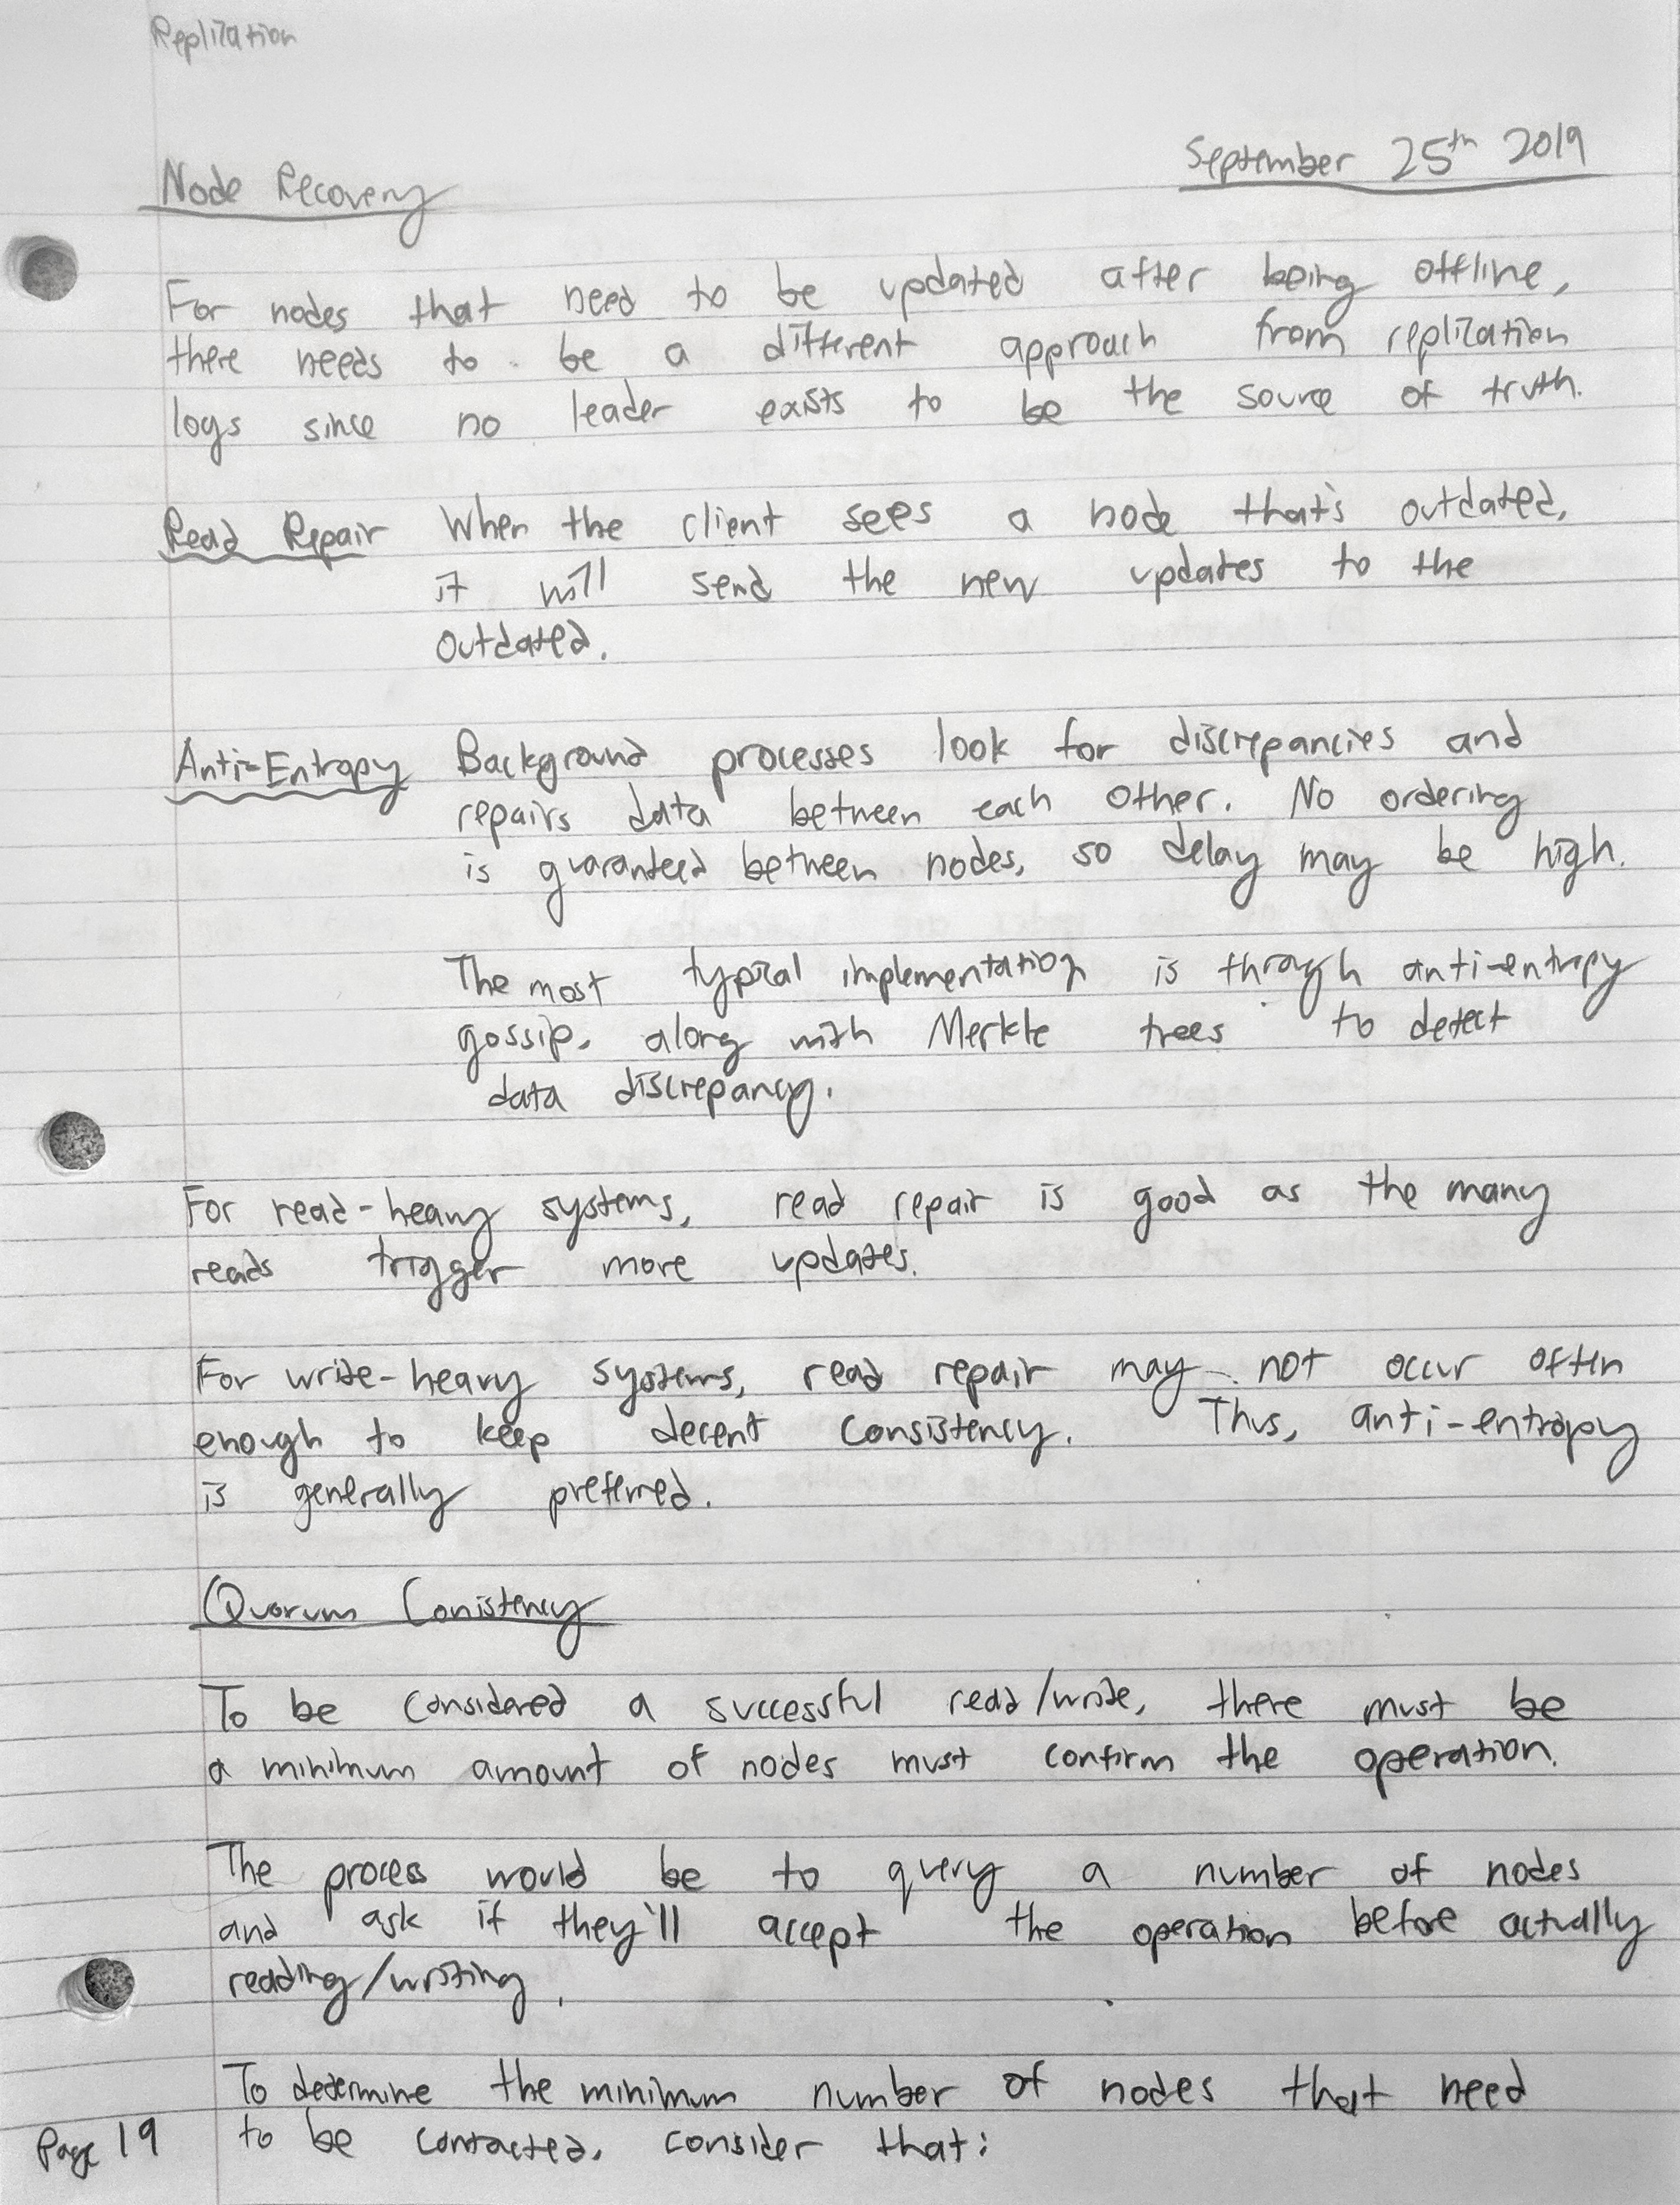 Replication
September 25th 2019
Node Recovery
For nodes that need to be updated after being offline,
there needs to be a different approach from replication
logs since no leader exists to be the source of truth.
Read Repair When the client sees a node that's outdated,
it will send the new updates to the
outdated.
Anti-Entropy Background processes look for discrepancies and
repairs data between each other. No ordering
is guaranteed between nodes, so delay may be high.
The most typical implementation is through anti-entropy
gossip, along with Merkle trees to detect
data discrepancy.
For read-heavy systems, read repair is good as the many
reads trigger more updates.
For write-heavy systems, read repair may not occur often
enough to keep decent consistency. Thus, anti-entropy
is generally preferred.
Quorum Conistency
To be considered a successful read/write, there must be
a minimum amount of nodes must confirm the operation.
The process would be to query a number of nodes
and ask if they'll accept the operation before actually
reading/writing.
To determine the minimum number of nodes that need
to be contacted, consider that:
Page 19